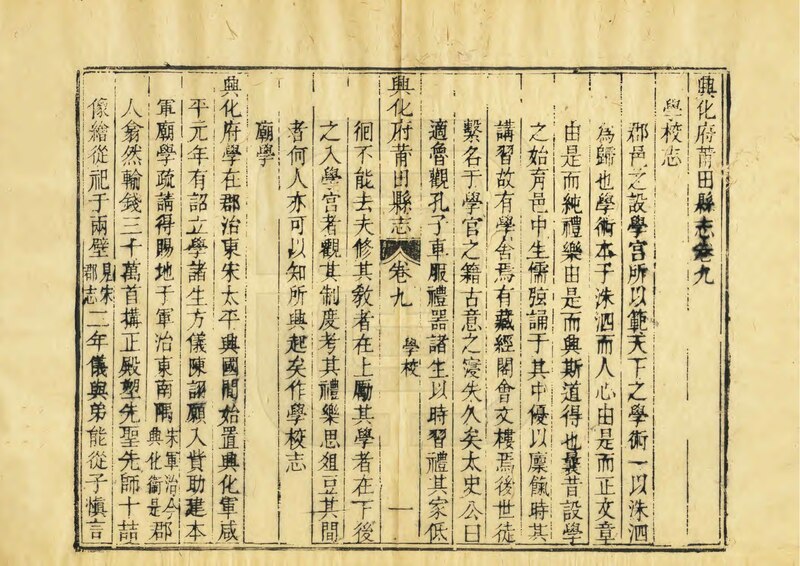 興化府莆田縣志卷九
學校志
郡邑之設學宮所以範天下之學術一以洙泗
為歸也學術本于洙泗而人心由是而正文章
由是而純禮樂由是而興斯道得也曩昔設學
之始育邑中生儒弦誦于其中優以廩餼時其
講習故有學舍焉有藏經閣會文樓焉後世徒
繫名于學官之籍古意之寖失久矣太史公曰
適魯觀孔子車服禮器諸生以時習禮其家低
興化府莆田縣志 卷九 學校 一
徊不能去夫修其敎者在上勵其學者在下後
之入學宮者觀其制度考其禮樂思俎豆其間
者何人亦可以知所興起矣作學校志
廟學
興化府學在郡治東宋太平興國間始置興化軍咸
平元年有詔立學諸生方儀陳詡願入貲助建本
軍廟學疏請得賜地于軍治東南隅宋軍治今興化衛是郡
人翕然輸錢三十萬首搆正殿塑先聖先師十喆
像繪從祀于兩壁見宋郡志二年儀與弟能從子愼言